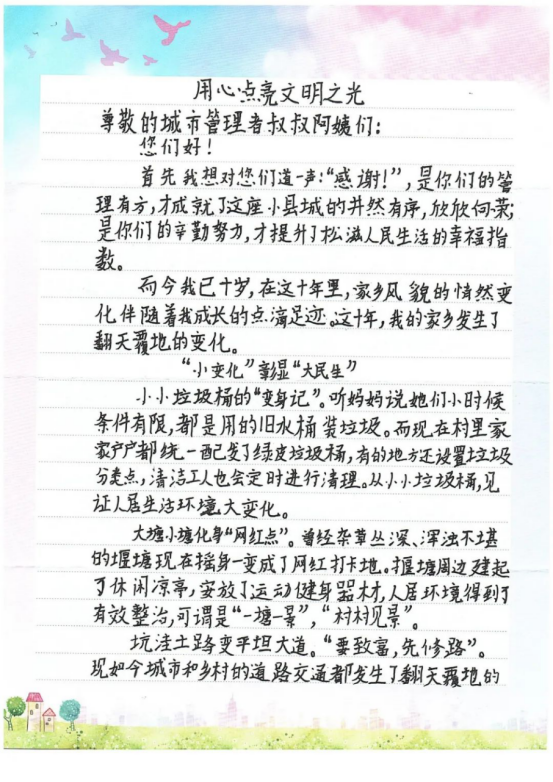 用心点亮文明之光
尊敬的城市管理者叔叔阿姨们：
您们好！
首先我想对您们道一声：“感谢！”，是你们的管
理有方，才成就了这座小县城的井然有序，欣欣向荣；
是你们的辛勤努力，才提升了松滋人民生活的幸福指
数。
而今我已十岁，在这十年里，家乡风貌的悄然变
化伴随着我成长的点滴足迹。这十年，我的家乡发生了
翻天覆地的变化。
“小变化”彰显“大民生”
小小垃圾桶的“变身记”。听妈妈说她们小时候
条件有限，都是用的旧水桶装垃圾。而现在村里家
家户户都统一配发了绿皮垃圾桶，有的地方还设置垃圾
分类点，清洁工人也会定时进行清理。从小小垃圾桶，见
证人居生活环境大变化。
大塘小塘化身“网红点”。曾经杂草丛深、浑浊不堪
的堰塘现在摇身一变成了网红打卡地。堰塘周边建起
了休闲凉亭，安放了运动健身器材，人居环境得到了
有效整治，可谓是“一塘一景”，“村村见景”。
坑洼土路变平坦大道。“要致富，先修路”。
现如今城市和乡村的道路交通都发生了翻天覆地的